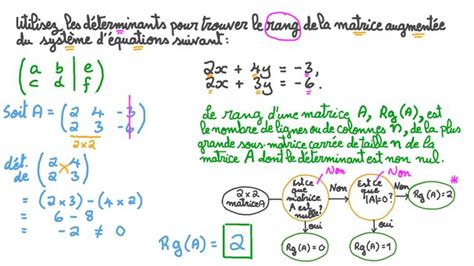 Utilisez les déterminants pour trouver le rang de la matrice augmentée
du système d'équations suivant:
( a b | e
c d | f )
2x + 4y = -3,
2x + 3y = -6.
Soit A = ( 2 4 -3
2 3 -6 )
2×2
Le rang d'une matrice A, Rg(A), est
le nombre de lignes ou de colonnes n, de la plus
grande sous-matrice carrée de taille n de la
matrice A dont le déterminant est non nul.
dét. de ( 2 4
2 3 )
= (2×3) - (4×2)
= 6 - 8
= -2 ≠ 0
Rg(A) = 2
2×2
matrice A
Est ce
que
matrice
A est
nulle?
Non
Non
Est ce
que
|A|=0?
Non
Non
Rg(A)=2
*
oui
oui
Rg(A)=0
Rg(A)=1